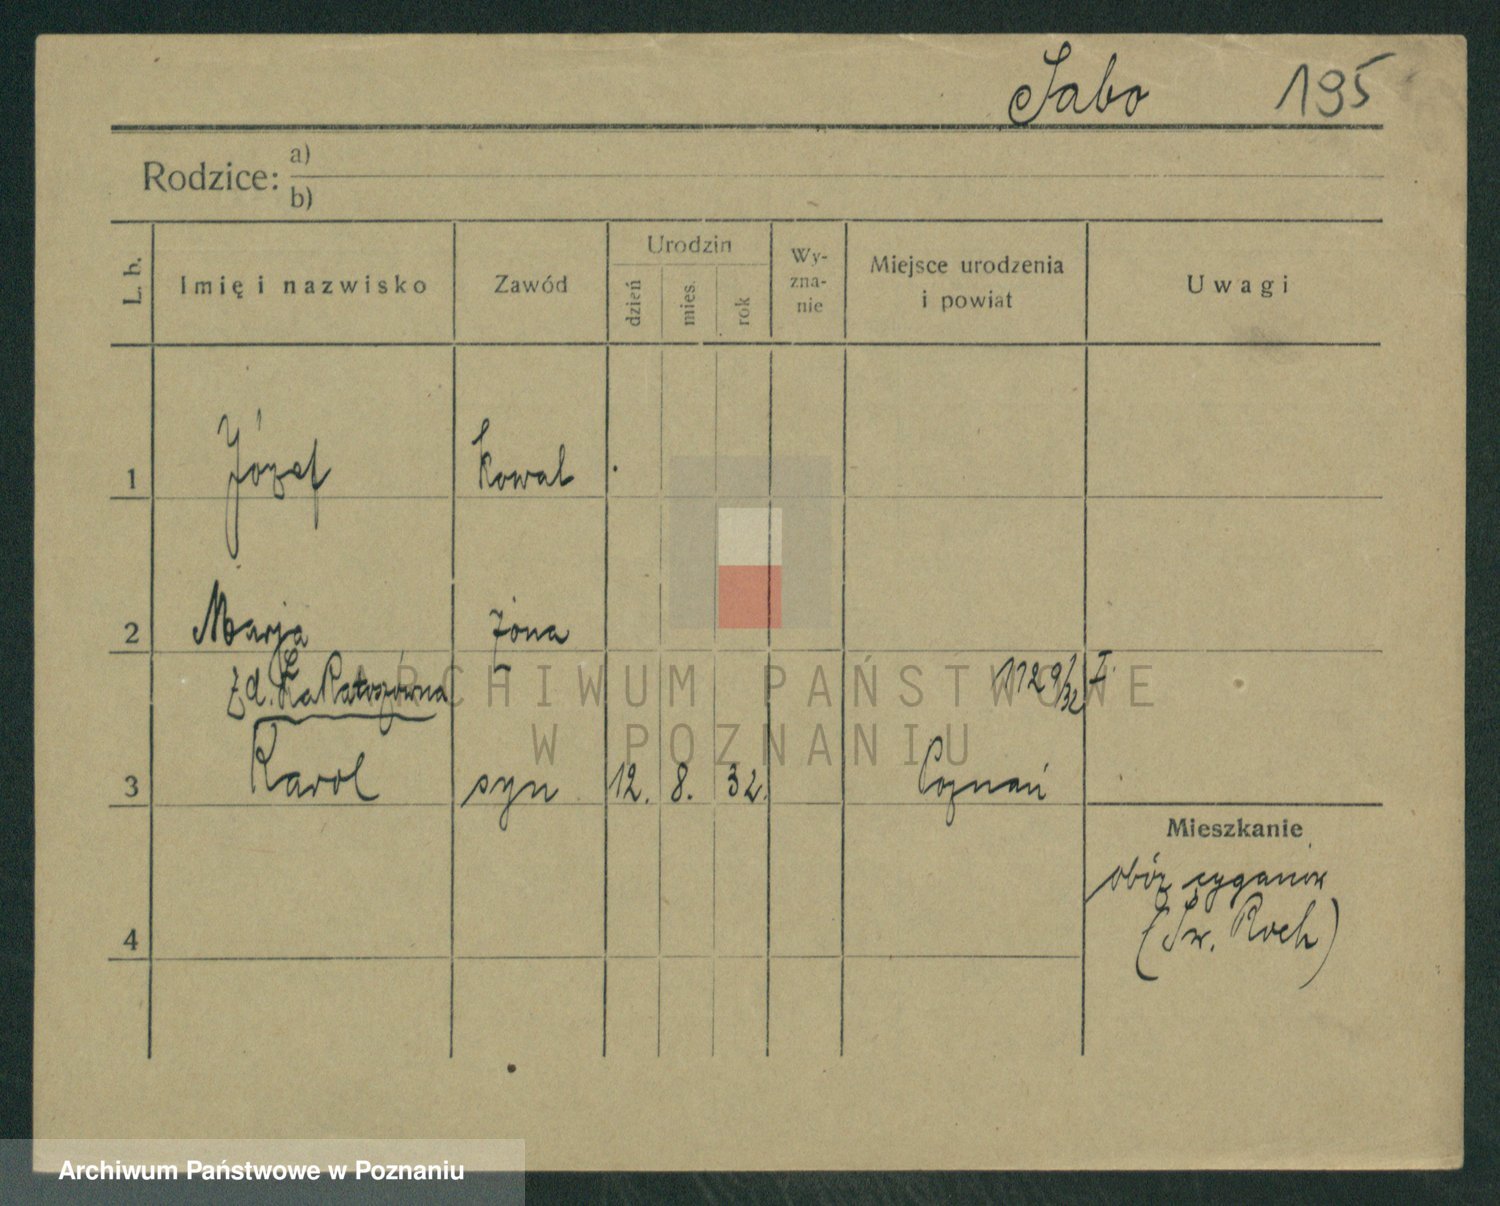 Sabo 195
Rodzice: a)
b)
L. b. Imię i nazwisko Zawód Urodzin dzień mies. rok Wy-zna-nie Miejsce urodzenia i powiat Uwagi
1 Józef kowal
2 Marja żona
zd. 1129/32 I.
3 Karol syn 12. 8. 32. Poznań
Mieszkanie
obóz cyganów
(Św. Roch)
4
ARCHIWUM PAŃSTWOWE
W POZNANIU
Archiwum Państwowe w Poznaniu